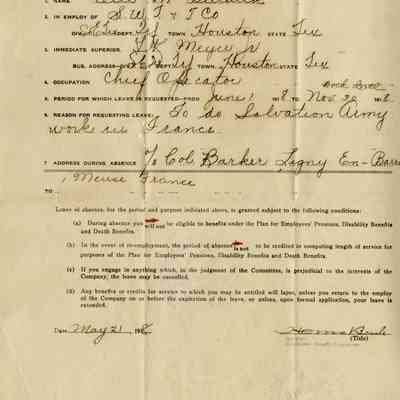 1. NAME
2. IN EMPLOY OF S. W. T. & T Co
DIV. DEPT. TOWN Houston STATE Tex
3. IMMEDIATE SUPERIOR. Meyer Jr
BUS. ADDRESS TOWN Houston STATE Tex
4. OCCUPATION Chief Operator
5. PERIOD FOR WHICH LEAVE IS REQUESTED—FROM June 1 1918 TO Nov 30 1918
6. REASON FOR REQUESTING LEAVE: To do Salvation Army
work in France.
7 ADDRESS DURING ABSENCE % Col. Barker Ligny En-Barr
, Meuse France
TO
Leave of absence, for the period and purpose indicated above, is granted subject to the following conditions:
(a) During absence you will not be eligible to benefits under the Plan for Employees' Pensions, Disability Benefits
and Death Benefits.
(b) In the event of re-employment, the period of absence is not to be credited in computing length of service for
purposes of the Plan for Employees' Pensions, Disability Benefits and Death Benefits.
(c) If you engage in anything which, in the judgment of the Committee, is prejudicial to the interests of the
Company, the leave may be cancelled.
(d) Any benefits or credits for service to which you may be entitled will lapse, unless you return to the employ
of the Company on or before the expiration of the leave, or unless, upon formal application, your leave is
extended.
Date May 21 1918
(Title)